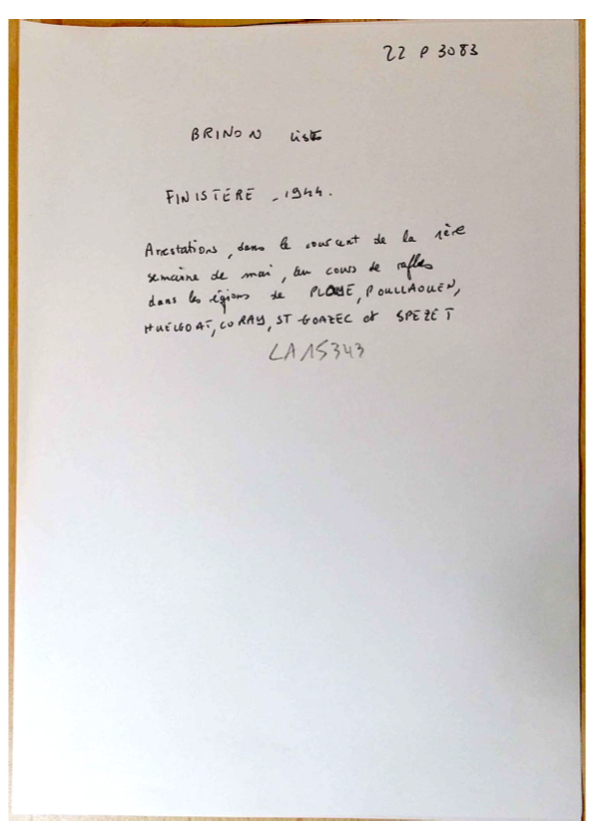 22 P 3083
BRINON Liste
FINISTÈRE - 1944.
Arrestations, dans le courant de la 1ère
semaine de mai, au cours de rafles
dans les régions de PLOYÉ, POULLAOUEN,
HUELGOAT, CORAY, ST GOAZEC et SPEZET
LA 15343